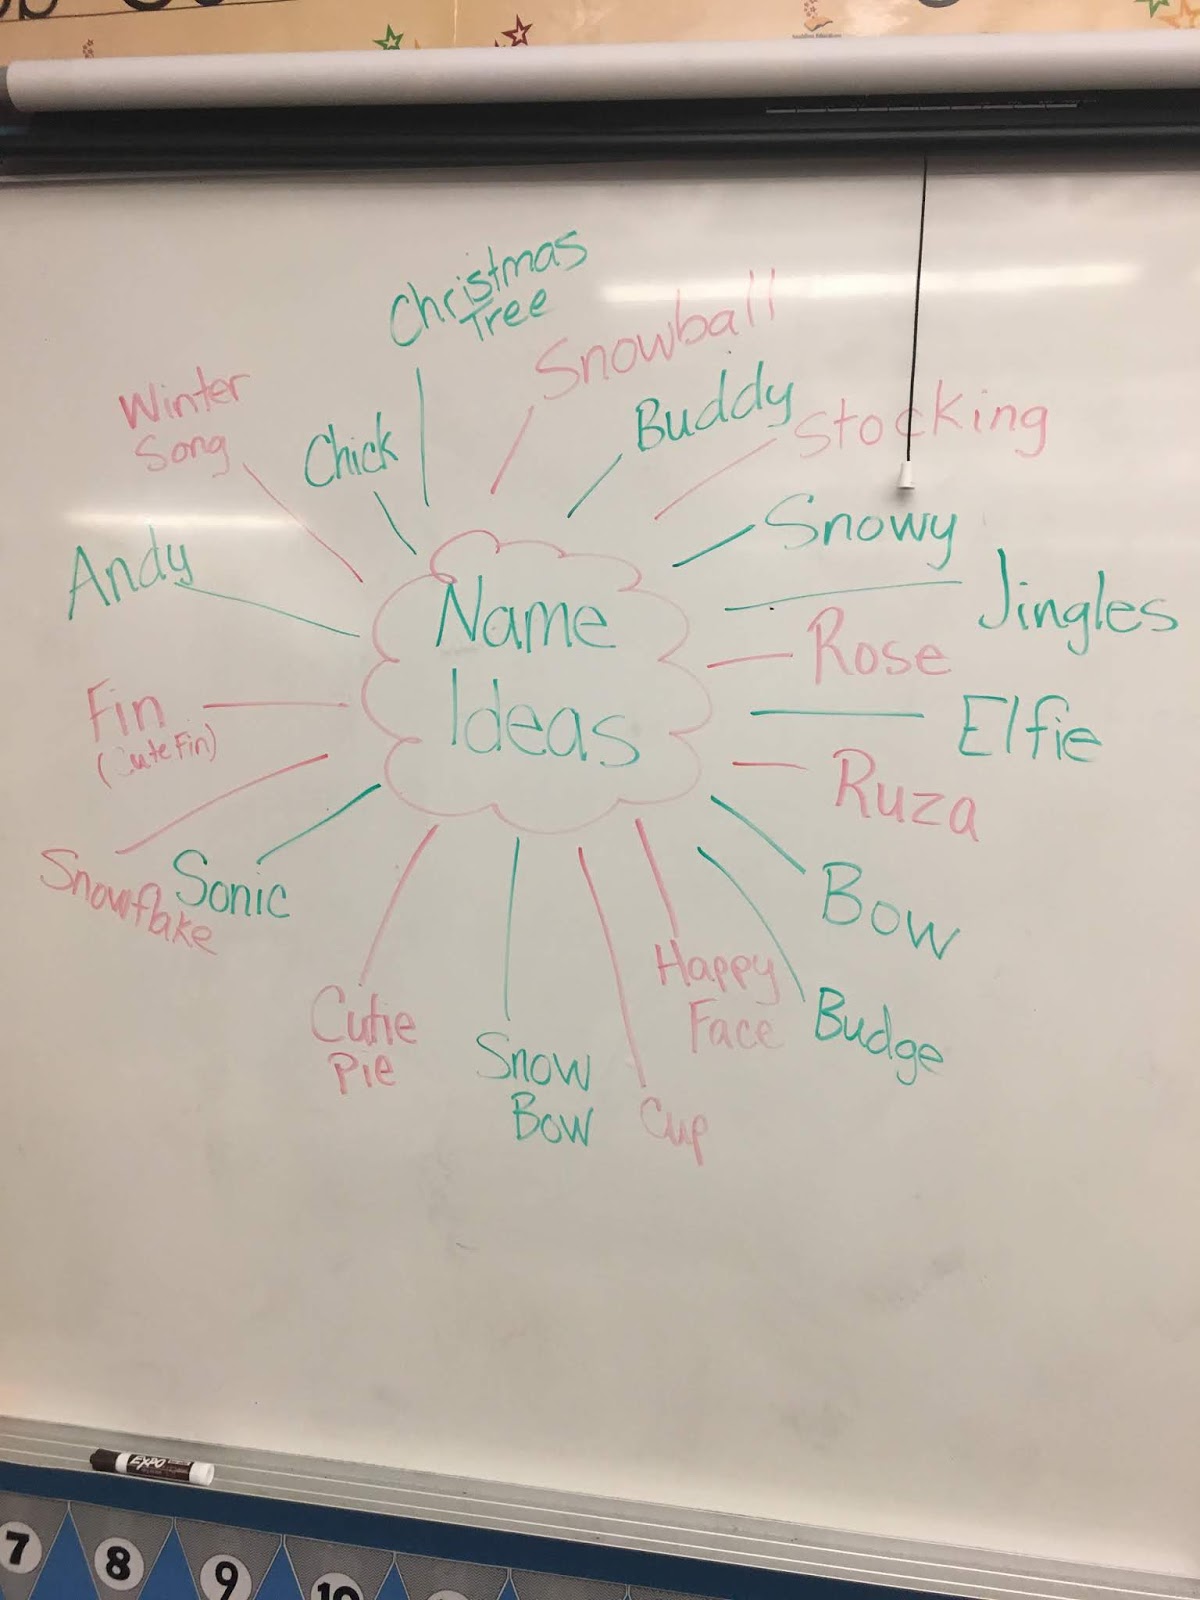 Name
Ideas
Christmas
Tree
Snowball
Buddy
Stocking
Snowy
Jingles
Rose
Elfie
Ruza
Bow
Budge
Happy
Face
Cup
Snow
Bow
Cutie
Pie
Sonic
Snowflake
Fin
(Cute Fin)
Andy
Winter
Song
Chick
EXPO
7
8
9
10